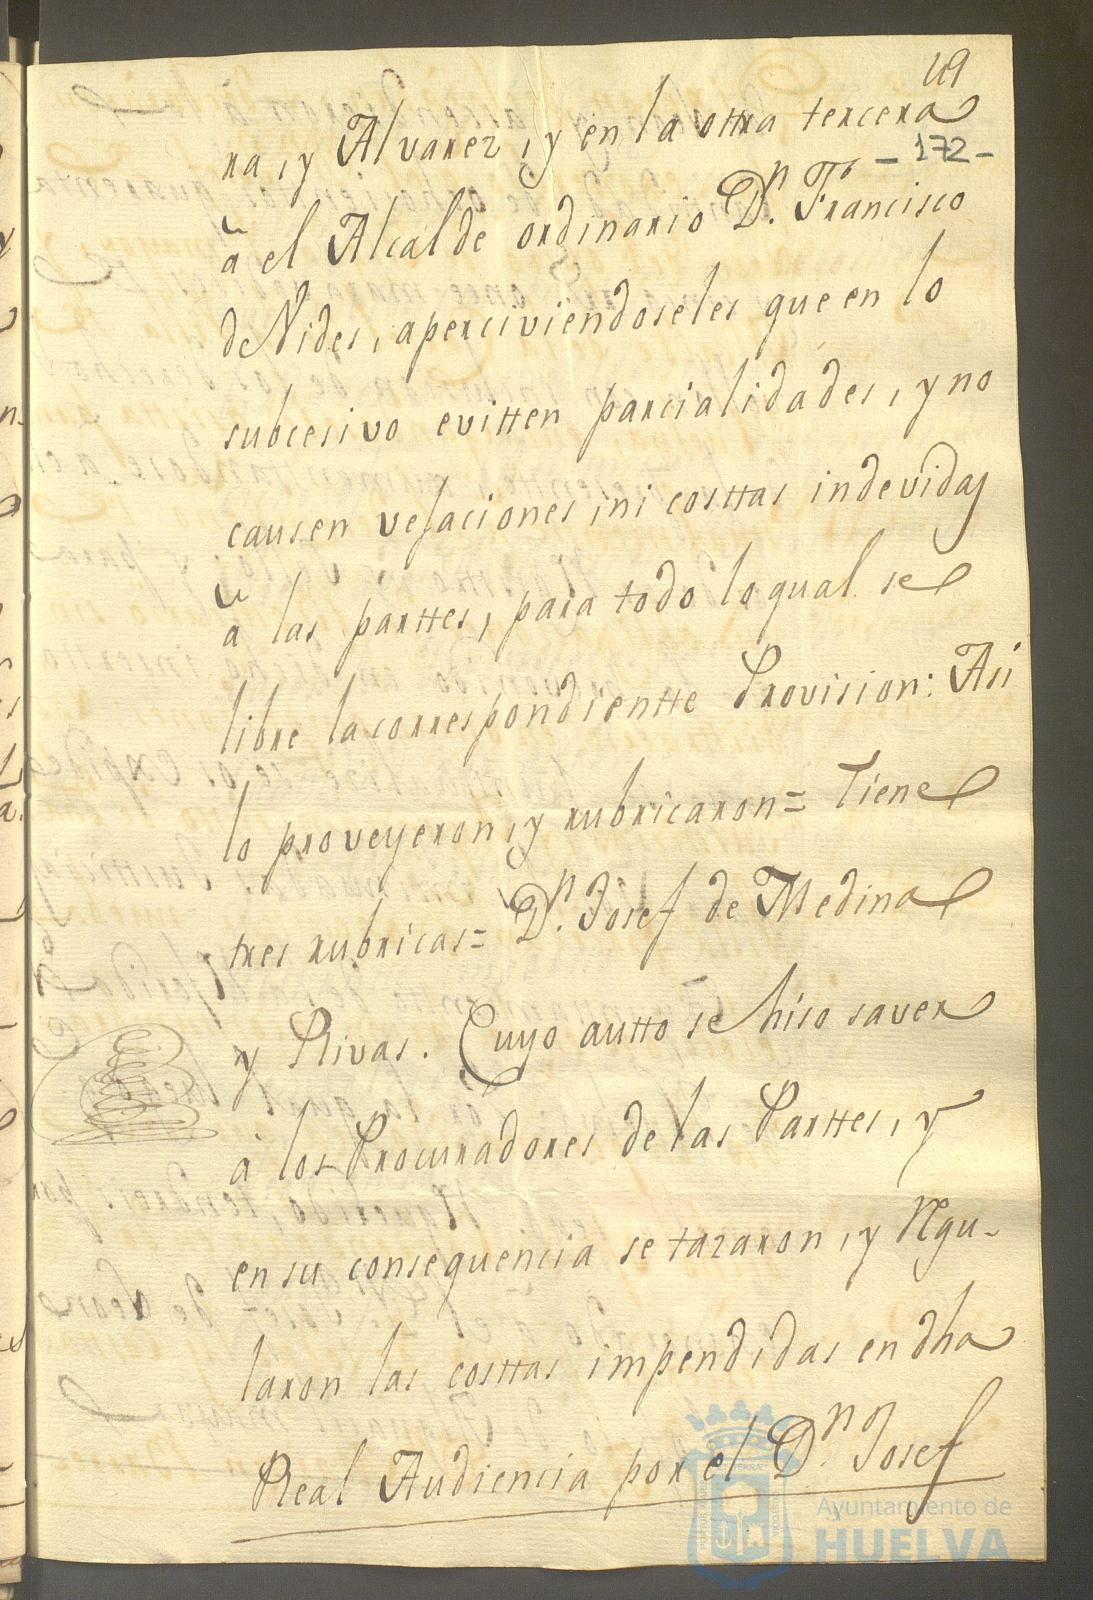 49
ra, y Alvarez, y en la ottra tercera
- 172 -
â el Alcalde ordinario D.n Francisco
de Nides, aperciviendoseles que en lo
subcesivo evitten parcialidades, y no
causen vejaciones, ni costtas indevidas
â las parttes, para todo lo qual se
libre la correspondientte Provision: Asi
lo proveyeron, y rubricaron= Tiene
tres rubricas= D.n Josef de Medina
y Rivas. Cuyo autto se hiso saver
à los Procuradores de las Parttes, y
en su consequencia se tazaron, y Regu-
laron las costtas impendidas en dha
Real Audiencia por el D.n Josef
Ayuntamiento de
HUELVA